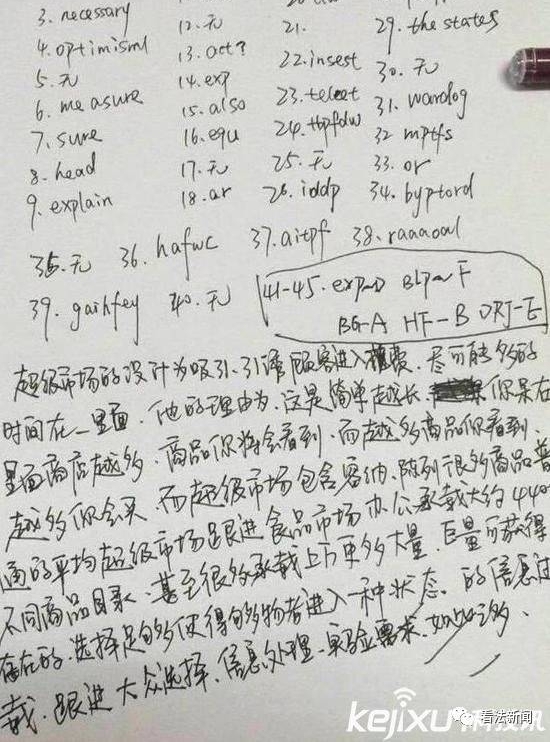 3. necessary 12. 无 21. 29. the states
4. optimisml 13. act? 22. insest 30. 无
5. 无 14. exp 23. telect 31. wardog
6. measure 15. also 24. tbpfdw 32 mptfs
7. sure 16. equ 25. 无 33. or
8. head 17. 无 26. iddp 34. byptord
9. explain 18. ar
35. 无 36. hafwc 37. aitpf 38. raaaoal
39. gaihfey 40. 无 41-45. exp-D BLP-F
BG-A HF-B DRJ-E
超级市场的设计为吸引、引诱顾客进入 尽可能多的
时间在一里面. 他的理由为, 这是简单越长 你呆在
里面商店越多, 商品你将会看到. 而越多商品你看到.
越多你会买. 而超级市场包含容纳、陈列很多商品普
通的平均超级市场跟进食品市场办公承载大约440
不同商品目录. 甚至很多承载上万更多大量, 巨量可获得
存在的. 选择足够多使得够多物者进入一种状态. 的信息过
载. 跟进大众选择. 信息处理 实验需求. 如此之多.
kejixu 科技讯
看法新闻